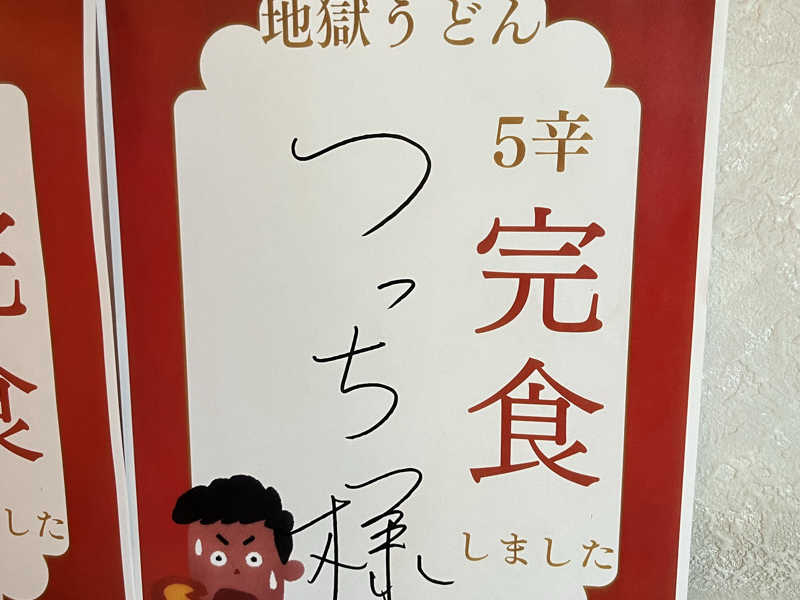 地獄うどん
5辛
完食
しました
つっち様
完食
した